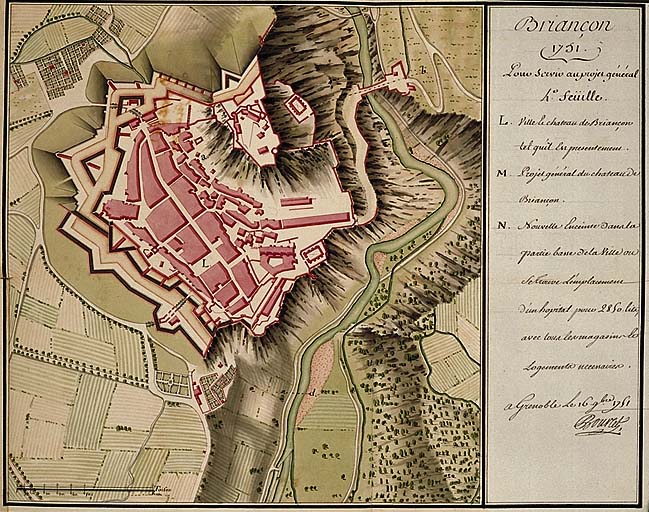 Briançon
1751.
Pour Servir au projet général
4e. feüille.
L. Ville le chateau de Briançon
tel qu'il Est presentement.
M. Projet général du chateau de
Briançon.
N. Nouvelle Enceinte dans la
partie basse de la Ville ou
Se trouve l'emplacement
d'un hopital pour 280. lits,
avec tous les magasins &
Logements necessaires.
a Grenoble Le 16 9bre 1751
L